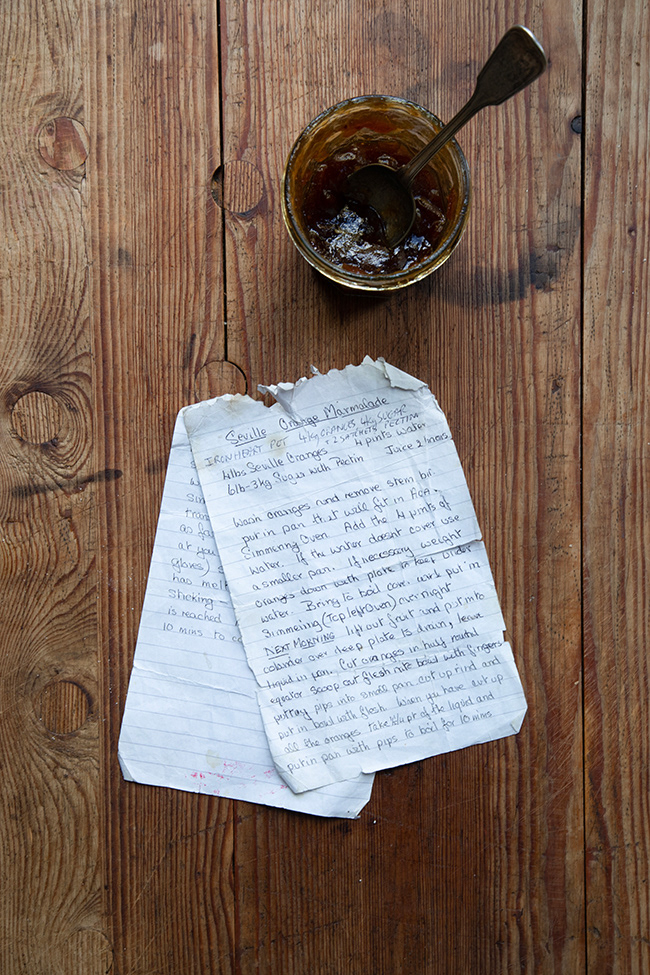 Seville Orange Marmalade
IRONHEART POT 4kg ORANGES 4kg SUGAR
+ 2 SATCHETS PECTIN
4lbs Seville Oranges 4 pints water
6lb-3kg Sugar with Pectin Juice 2 lemons
Wash oranges and remove stem bit
put in pan that will fit in AGA
Simmering Oven Add the 4 pints of
water. If the water doesn't cover use
a smaller pan. If necessary weight
oranges down with plate to keep under
water. Bring to boil cover and put in
Simmering (Top left Oven) overnight
NEXT MORNING lift out fruit and put into
colander over deep plate to drain, leave
liquid in pan. Cut oranges in half round
equator scoop out flesh into bowl with fingers
putting pips into small pan. cut up rind and
put in bowl with flesh. When you have cut up
all the oranges take 1/2 pt of the liquid and
put in pan with pips to boil for 10 mins
as fa
at you
gloves) S
has mel
Sticking
is reached
10 mins to c